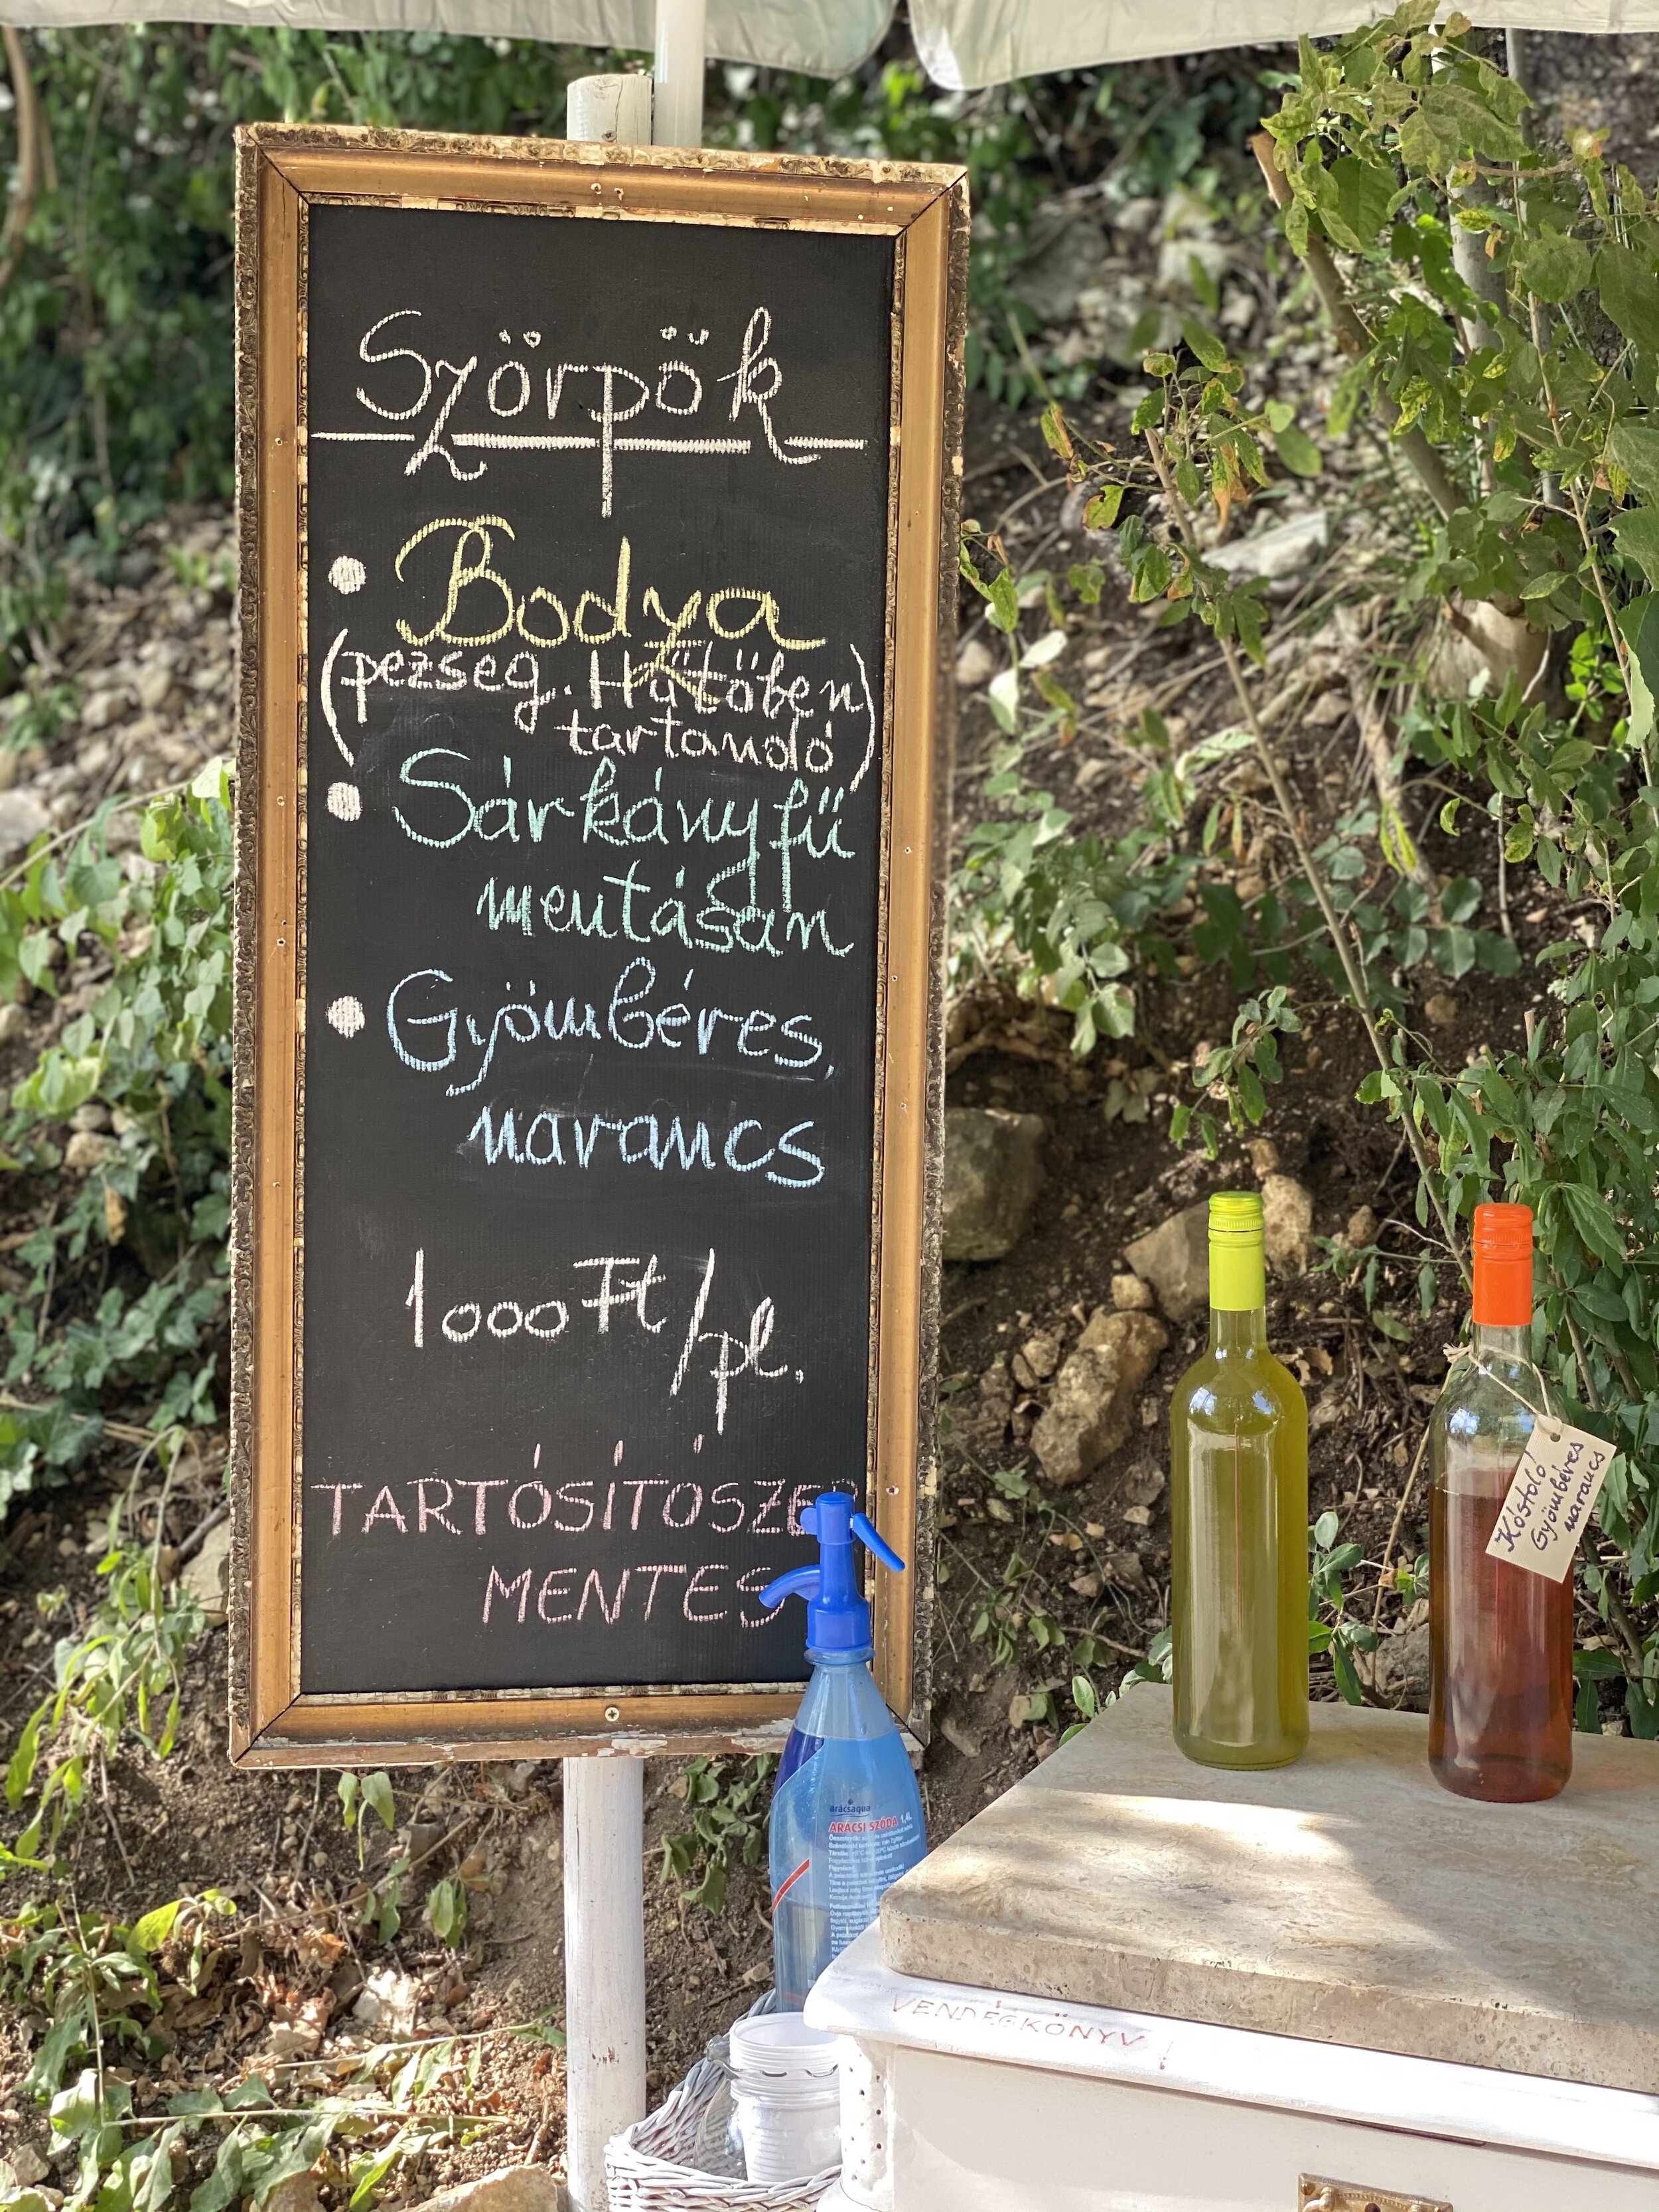 Szörpök
• Bodza
(pezseg. Hűtőben
tartandó)
• Sárkányfű
mentásan
• Gyömbéres,
narancs
1000 Ft/pl.
TARTÓSÍTÓSZER
MENTES
Kóstoló!
Gyömbéres
narancs
arácsaqua
ARÁCSI SZÓDA 1,4L
VENDÉGKÖNYV!